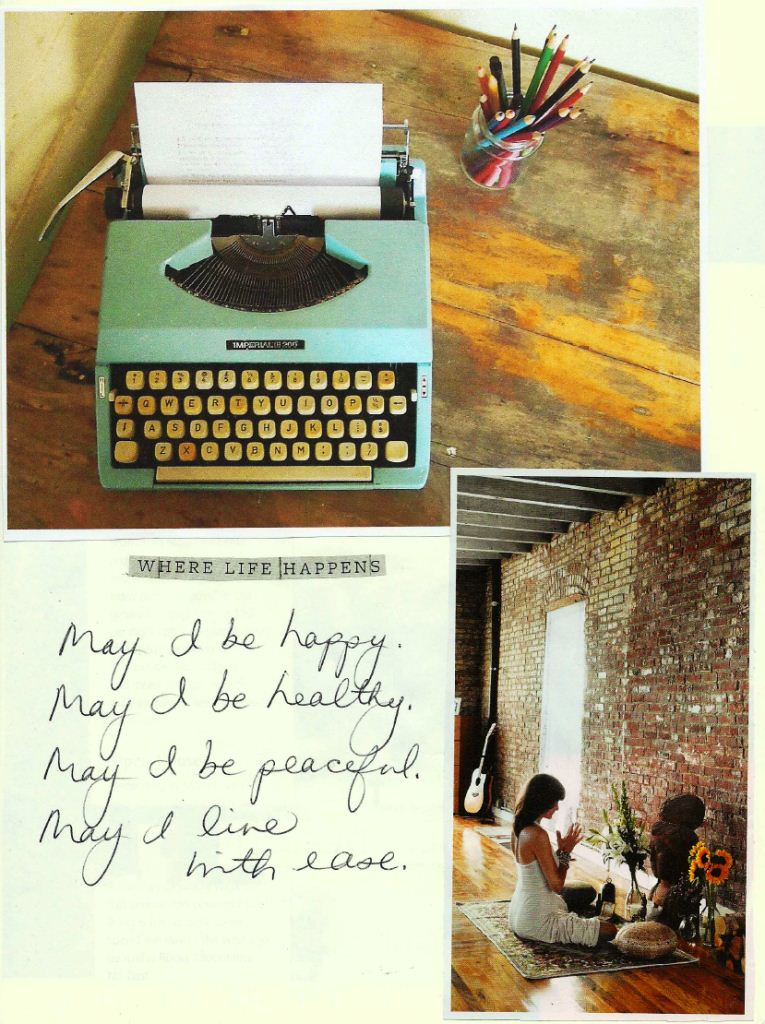 IMPERIAL 200
Q W E R T Y U I O P
A S D F G H J K L
Z X C V B N M
WHERE LIFE HAPPENS
May I be happy.
May I be healthy.
May I be peaceful.
May I live
with ease.